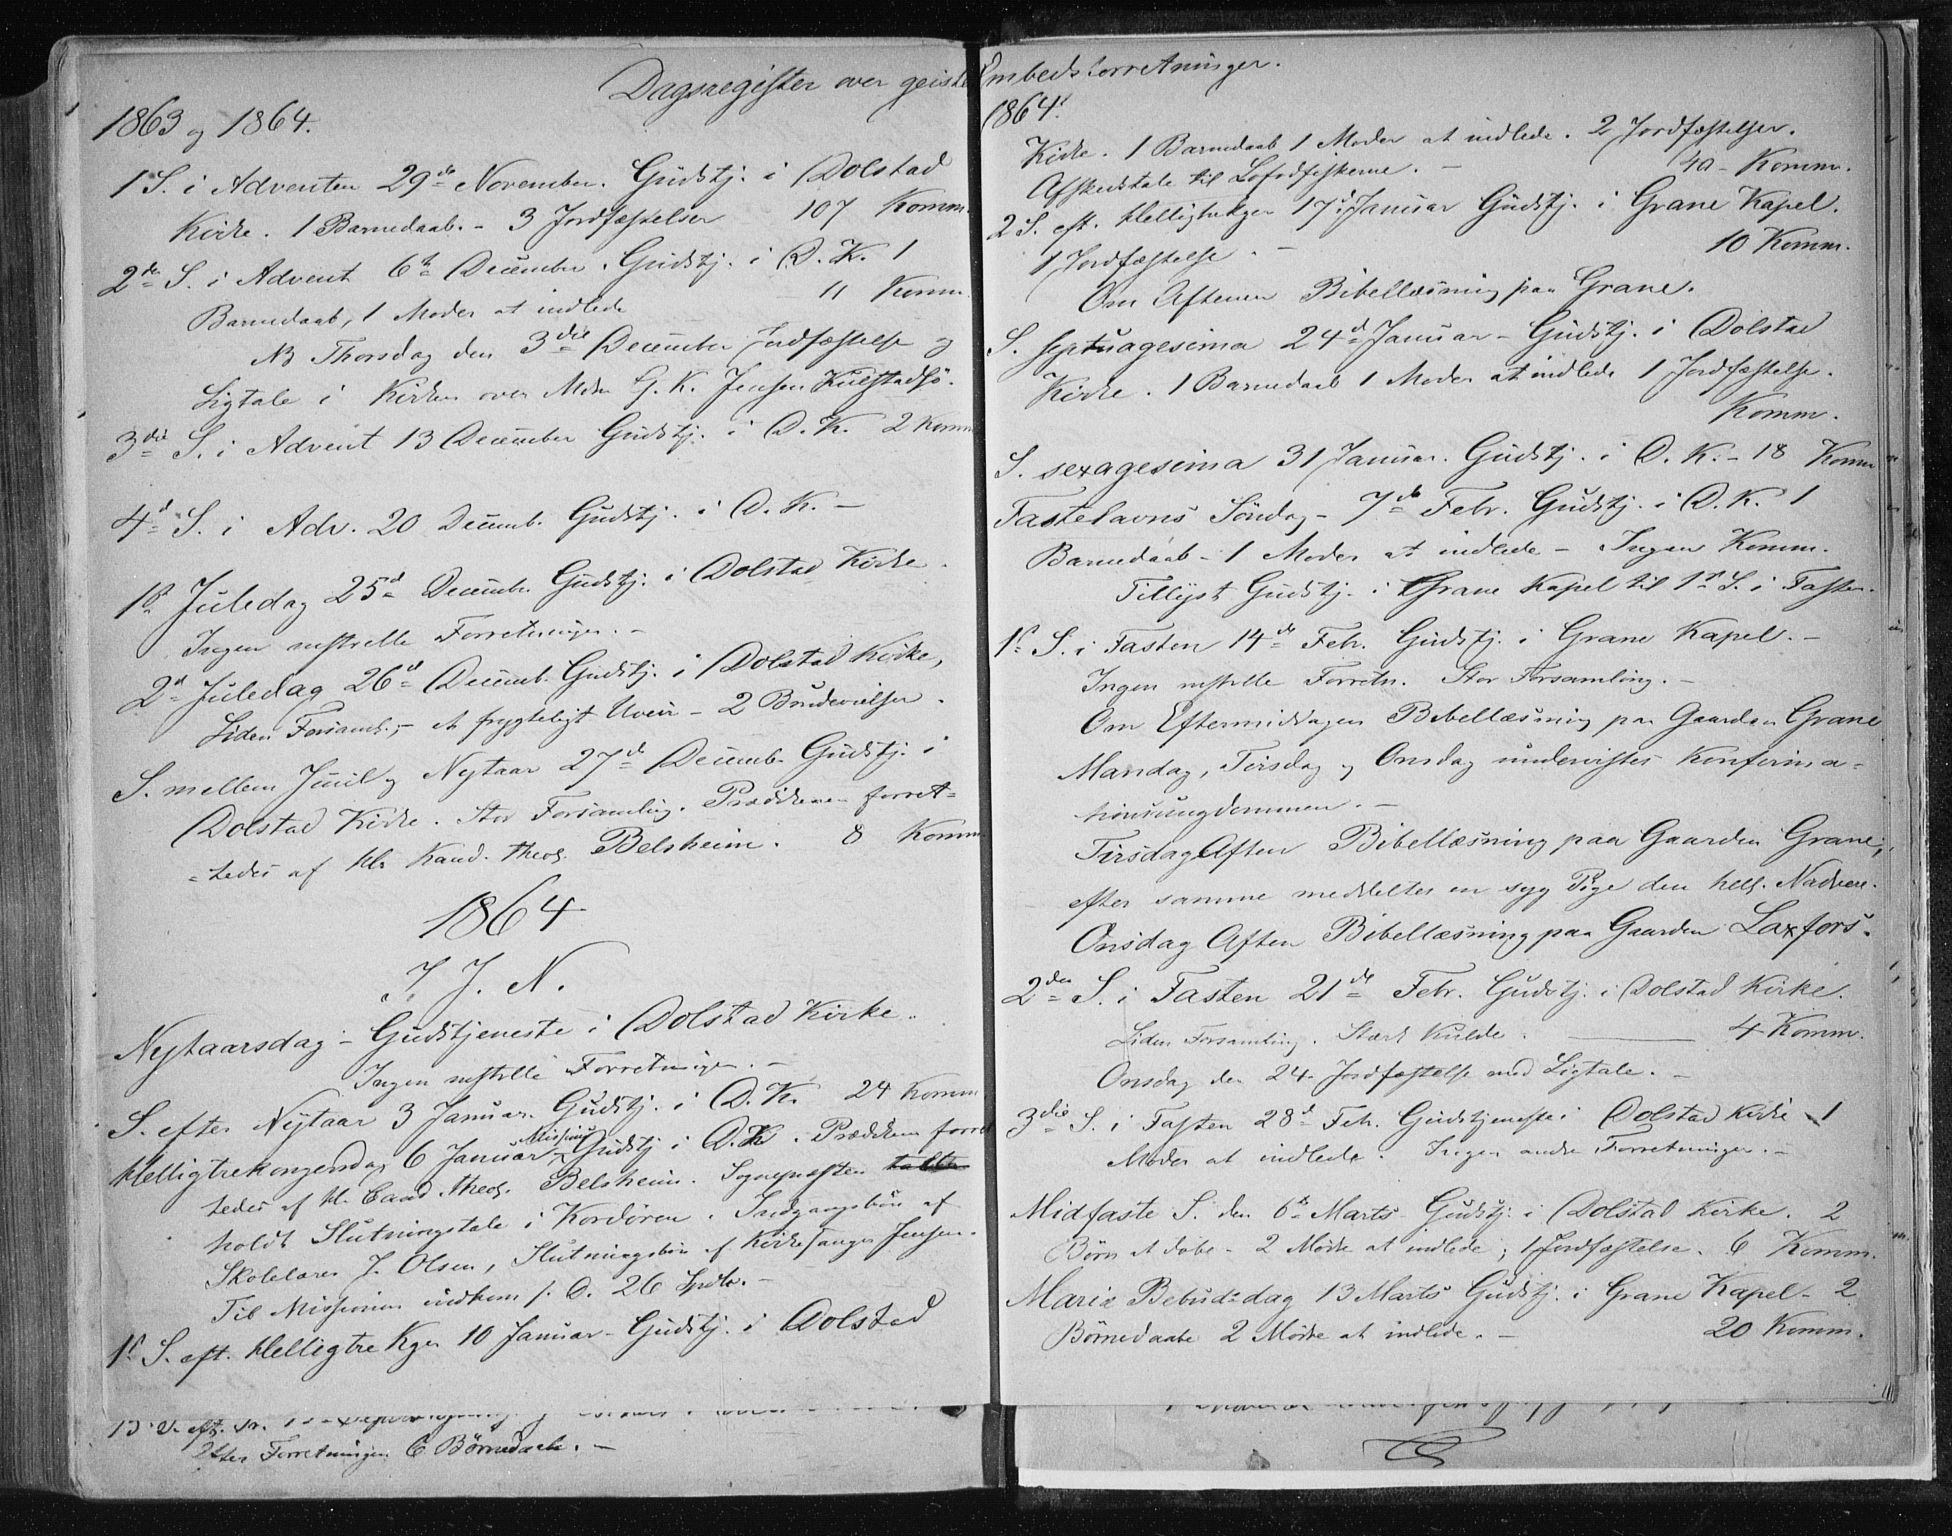 Dagsregister over geistl Embedsforretninger.
1863 og 1864.
1 S. i Adventen 29de November. Gudstj. i Dolstad
Kirke. 1 Barnedaab. - 3 Jordfæstelser 107 Komm.
2den S. i Advent 6te December. Gudstj. i D. K. 1
Barnedaab, 1 Moder at indlede 11 Komm.
NB Thorsdag den 3die December Jordfæstelse og
Ligtale i Kirken over G. K. Jensen Kulstadsjö.
3die S. i Advent 13 December Gudstj. i D. K. 2 Komm
4de S. i Adv. 20 Decemb. Gudstj. i D. K. -
1ste Juledag 25de Decembr. Gudstj. i Dolstad Kirke.
Ingen ministrielle Forretninger. -
2den Juledag 26de Decemb. Gudstj. i Dolstad Kirke,
Liden Forsaml., - et frygteligt Uveir - 2 Brudevielser.
S. mellem Juul og Nytaar 27de Decemb. Gudstj. i
Dolstad Kirke. Stor Forsamling. Prædikenen forret=
=tedes af Hr Kand. theol. Belsheim. 8 Komm.
1864
I. J. N.
Nytaarsdag - Gudstjeneste i Dolstad Kirke.
Ingen ministrielle Forretninger. -
S. efter Nytaar 3 Januar. Gudstj. i D. K. 24 Komm.
Helligtrekongersdag 6 Januar Missions Gudstj i D. K. Prædiken forret
tedes af Hr. Cand. theol. Belsheim. Sognepræsten
holdt Slutningstale i Kordören. Indgangsbön af
Skolelærer J. Olsen, Slutningsbön af Kirkesanger Jensen.
Til Missionen indkom s. D. 26 Spdlr. -
1ste S. eft. Helligtre Kger 10 Januar - Gudstj. i Dolstad
Efter Forretningen 6 Börnedaabe. -
1864.
Kirke. 1 Barnedaab 1 Moder at indlede. 2 Jordfæstelser.
Afskedstale til Lofodfiskerne. - 40 - Komm.
2 S. eft. Helligtrekger 17de Januar Gudstj. i Grane Kapel.
1 Jordfæstelse. - 10 Komm.
Om Aftenen Bibellæsning paa Grane.
S. septuagesima 24de Januar - Gudstj. i Dolstad
Kirke. 1 Barnedaab 1 Moder at indlede 1 Jordfæstelse.
Komm.
S. sexagesima 31 Januar. Gudstj. i D. K. - 18 Komm
Fastelavns Söndag - 7de Febr. Gudstj. i D. K. 1
Barnedaab - 1 Moder at indlede - Ingen Komm.
Tillyst Gudstj. i Grane Kapel til 1ste S. i Fasten.
1ste S. i Fasten 14de Feb. Gudstj. i Grane Kapel. -
Ingen ministrielle Forretn. Stor Forsamling. -
Om Eftermiddagen Bibellæsning paa Gaarden Grane
Mandag, Tirsdag og Onsdag undervistes Konfirma=
tionsungdommen. -
Tirsdag Aften Bibellæsning paa Gaarden Grane,
efter samme meddeltes en syg Pige den hell. Nadvere.
Onsdag Aften Bibellæsning paa Gaarden Laxfors.
2den S. i Fasten 21de Febr. Gudstj. i Dolstad Kirke.
Liden Forsamling. Stærk Kulde. 4 Komm.
Onsdag den 24. Jordfæstelse med Ligtale. -
3die S. i Fasten 28de Feb. Gudstjeneste i Dolstad Kirke 1
Moder at indlede. Ingen andre Forretninger. -
Midfaste S. den 6te Marts Gudstj. i Dolstad Kirke. 2
Börn at döbe - 2 Mödre at indlede, 1 Jordfæstelse. 6 Komm.
Mariæ Bebud:dag 13 Marts Gudstj. i Grane Kapel - 2
Börnedaabe 2 Mödre at indlede. - 20 Komm.